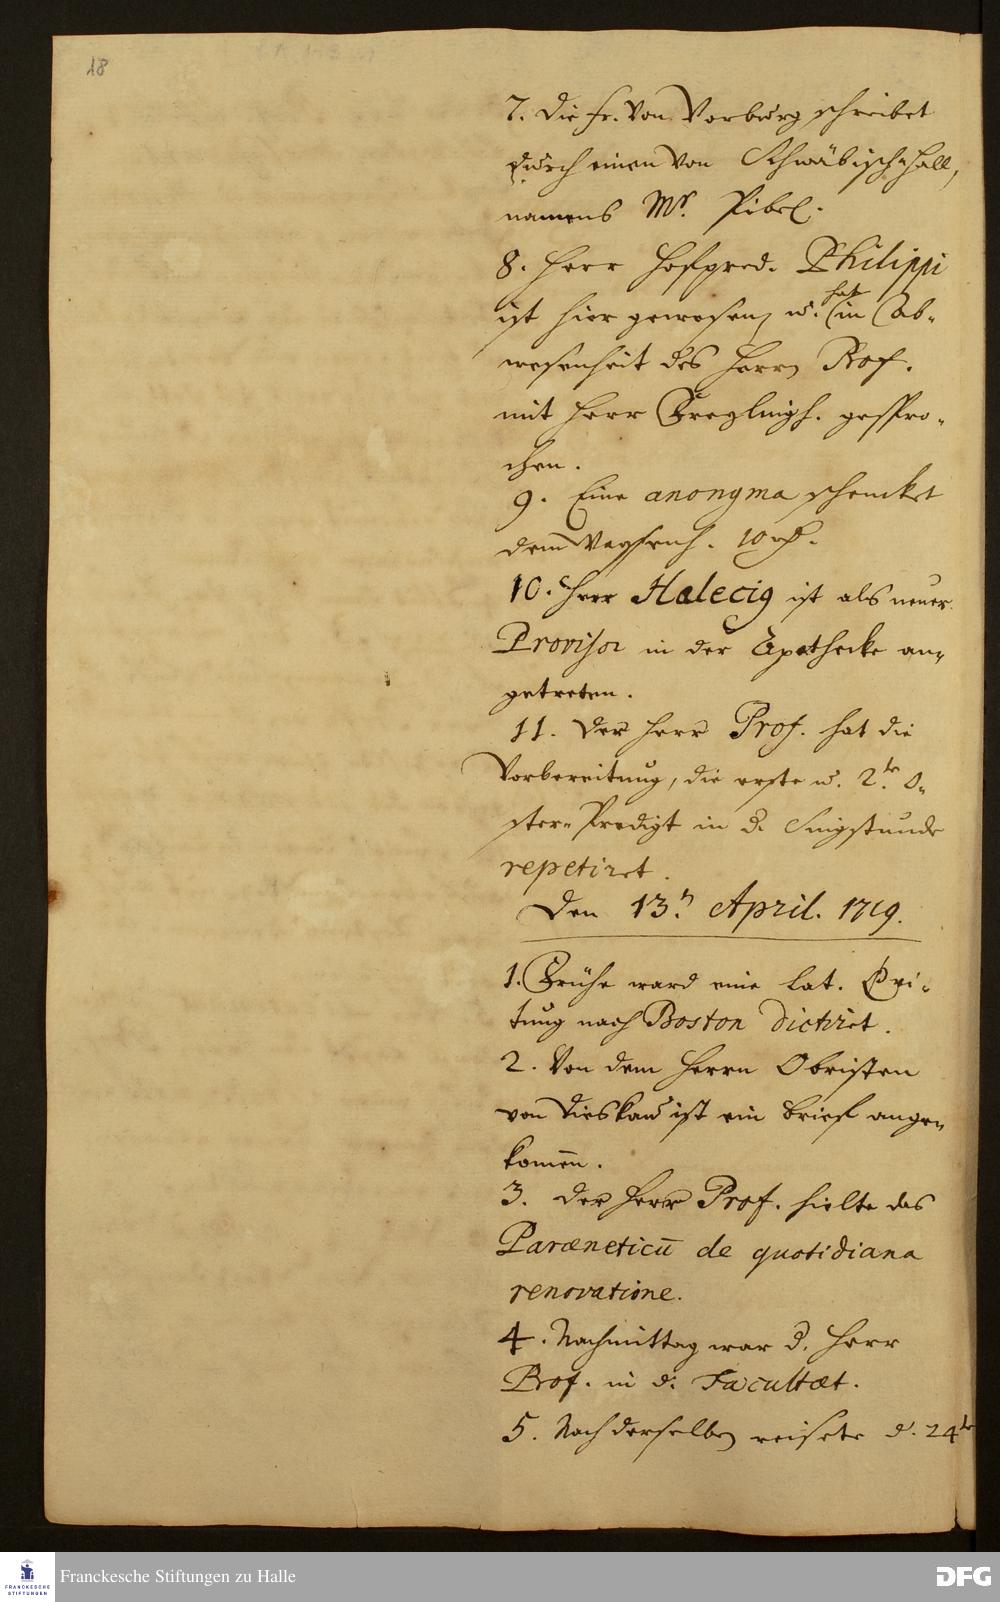 18
7. Die Fr. von Vorburg schreibet
durch einen von Schwäbisch-Hall,
namens Mr. Pibel.
8. Herr Hofpred. Philippi
ist hier gewesen, u. hat in Ab-
wesenheit des Herrn Prof.
mit Herr Freylingh. gespro-
chen.
9. Eine anonyma schencket
dem Waysenh. 10 rthl.
10. Herr Halecig ist als neuer
Provisor in der Apothecke an-
getreten.
11. Der Herr Prof. hat die
Vorbereitung, die erste u. 2.te O-
ster-Predigt in d. Singstunde
repetiret.
Den 13.n April. 1719.
1. Frühe ward eine lat.
nach Boston dictiret.
2. Von dem Herrn Obristen
von Dieskau ist ein Brief ange-
kom̅en.
3. Der Herr Prof. hielte das
Paræneticū de quotidiana
renovatione.
4. Nachmittag war d. Herr
Prof. in d. Facultæt.
5. Nach derselben reisete d. 24te
Franckesche Stiftungen zu Halle
FRANCKESCHE
STIFTUNGEN
DFG